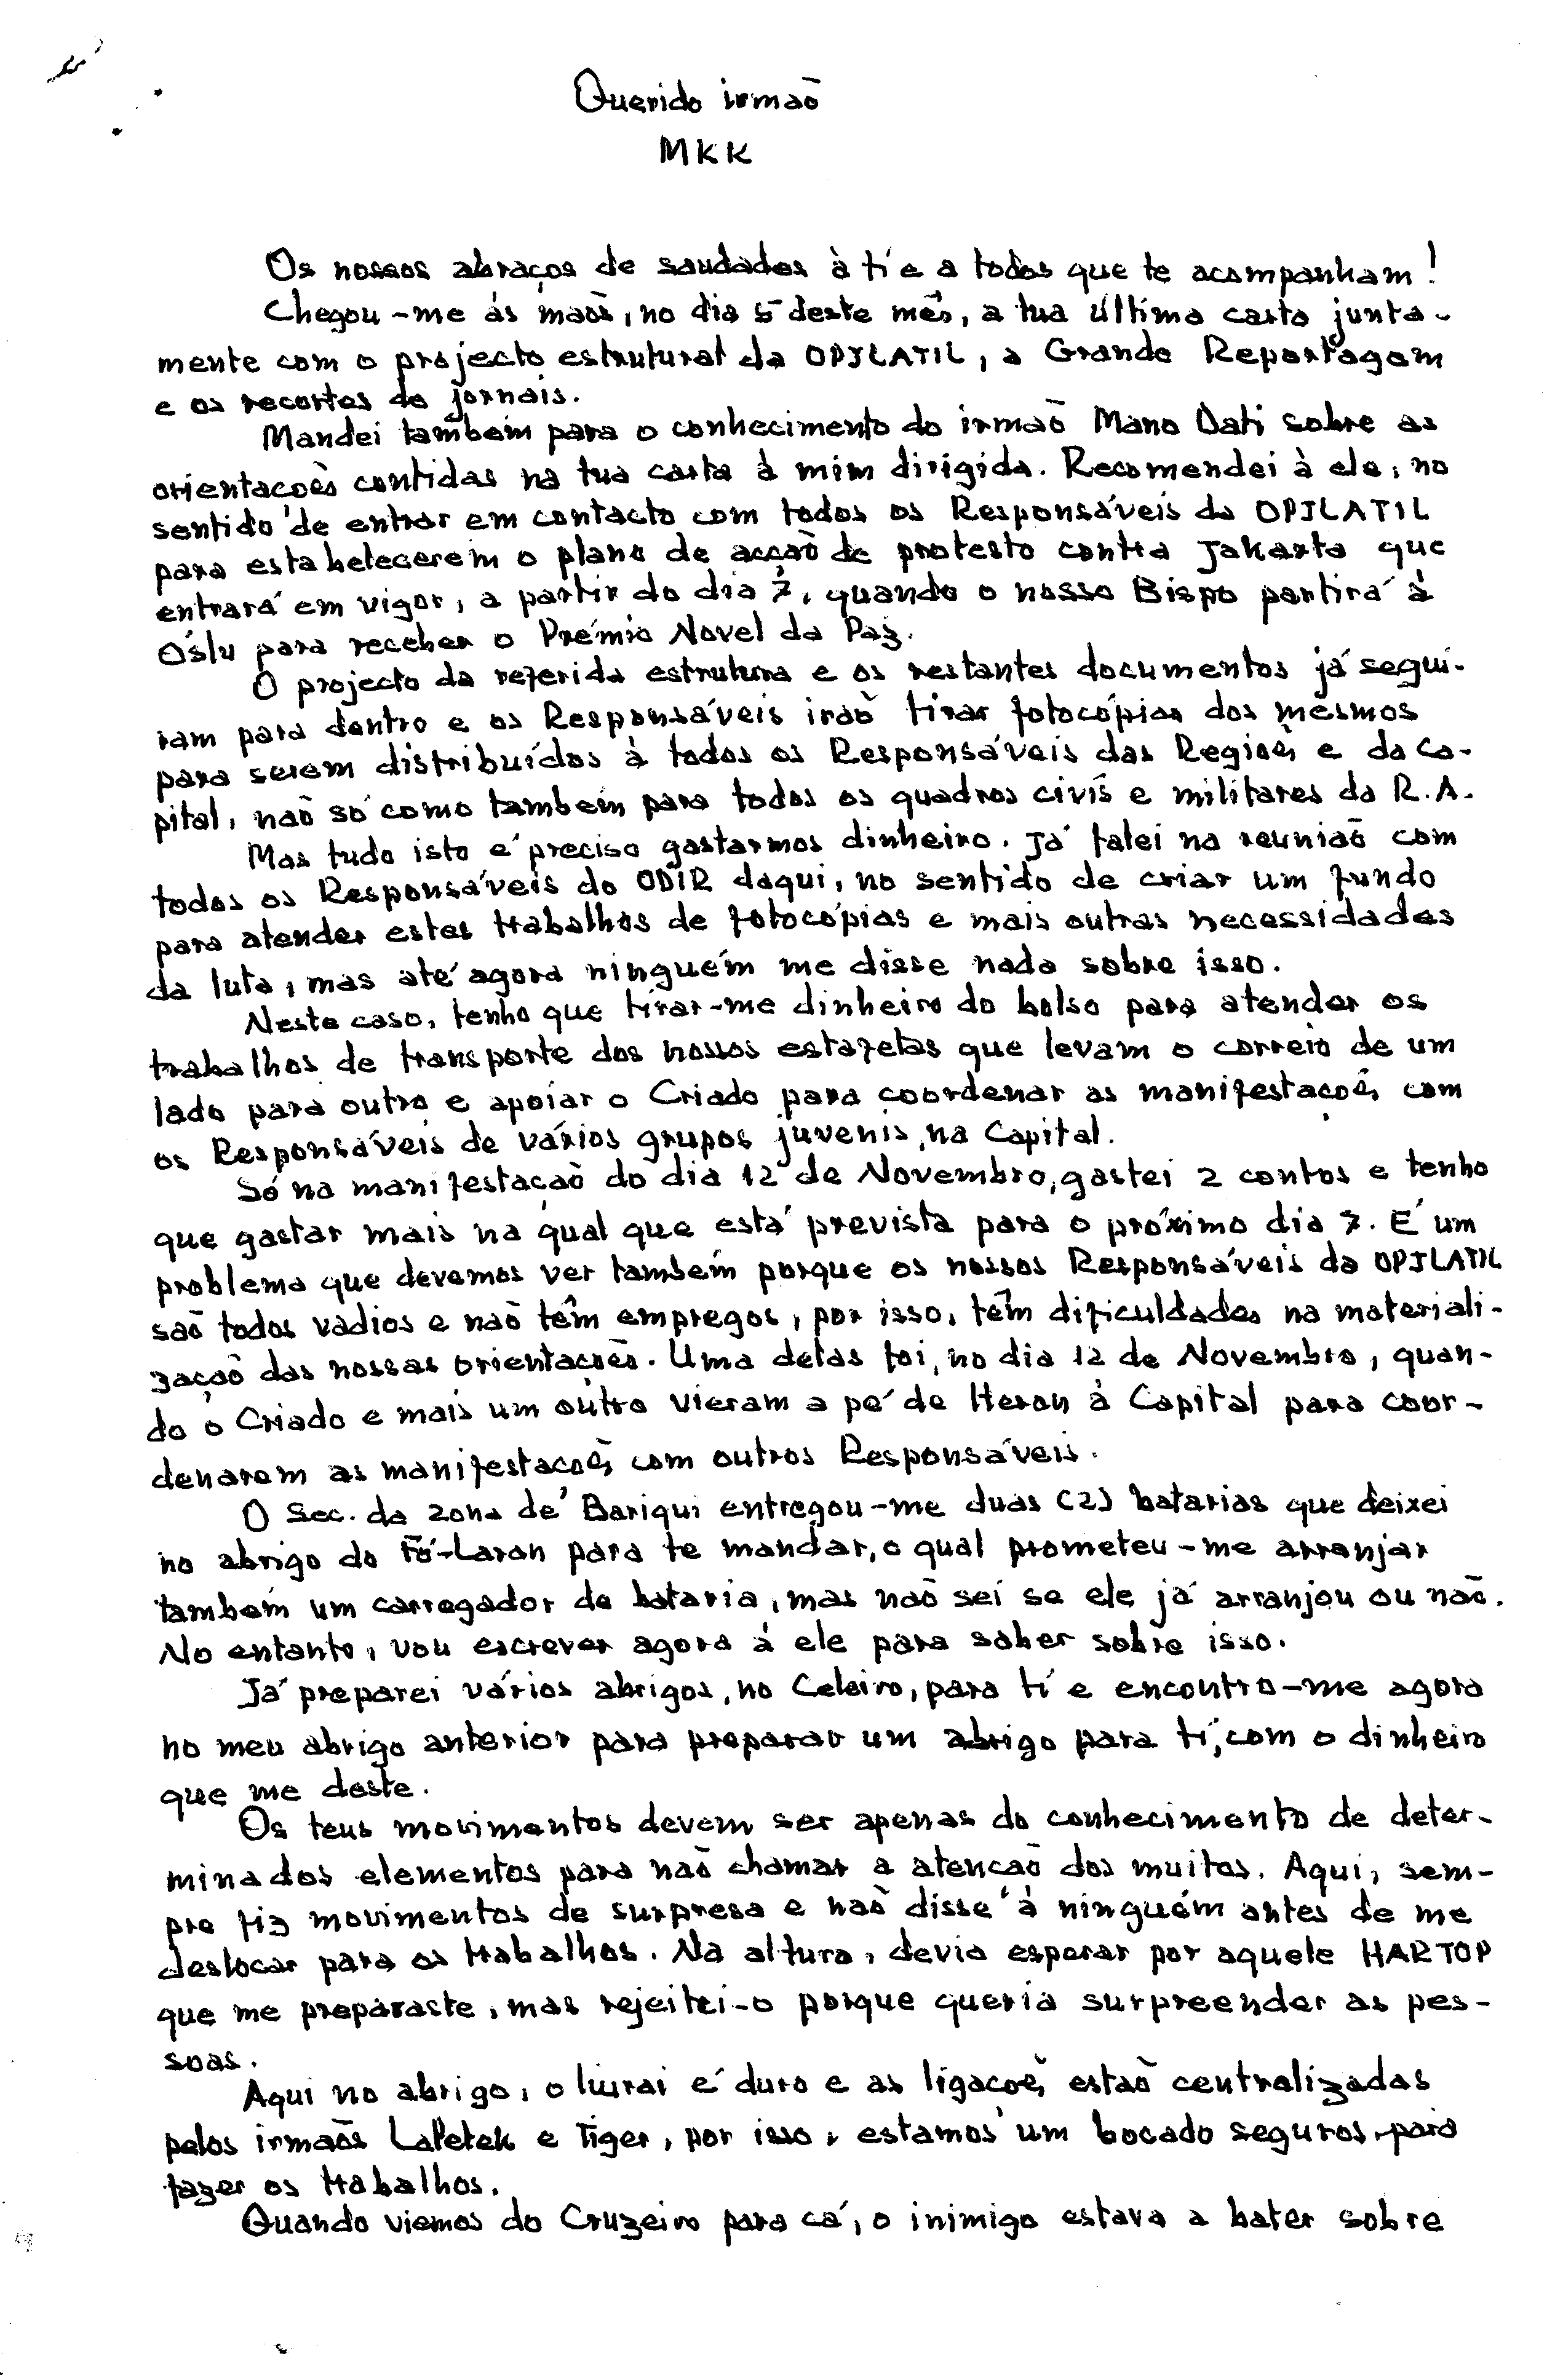 Querido irmaõ
MKK
Os nossos abraços de saudades à tí e a todos que te acompanham!
Chegou-me ás maõs, no dia 5 deste mês, a tua última carta junta-
mente com o projecto estrutural da OPJLATIL, a Grande Reportagem
e os recortes de jornais.
Mandei também para o conhecimento do irmaõ Mano Dati sobre as
orientaçoẽs contidas na tua carta à mim dirigida. Recomendei à ele, no
sentido de entrar em contacto com todos os Responsáveis da OPJLATIL
para estabelecerem o plano de acçaõ de protesto contra Jakarta que
entrará em vigor, a partir do dia 7, quando o nosso Bispo partirá à
Óslu para receber o Prémio Novel da Paz.
O projecto da referida estrutura e os restantes documentos já segui-
ram para dentro e os Responsáveis iraõ tirar fotocópias dos mesmos
para serem distribuídos à todos os Responsáveis das Regioẽs e da Ca-
pital, naõ só como também para todos os quadros civís e militares da R.A.
Mas tudo isto é preciso gastarmos dinheiro. Já falei na reuniaõ com
todos os Responsáveis do ODIR daqui, no sentido de criar um fundo
para atender estes trabalhos de fotocópias e mais outras necessidades
da luta, mas até agora ninguém me disse nada sobre isso.
Neste caso, tenho que tirar-me dinheiro do bolso para atender os
trabalhos de transporte dos nossos estafetas que levam o correio de um
lado para outro e apoiar o Criado para coordenar as manifestaçoẽs com
os Responsáveis de vários grupos juvenis, na Capital.
Só na manifestaçaõ do dia 12 de Novembro, gastei 2 contos e tenho
que gastar mais na qual que está prevista para o próximo dia 7. É um
problema que devemos ver também porque os nossos Responsáveis da OPJLATIL
saõ todos vadios e naõ têm empregos, por isso, têm dificuldades na materiali-
zaçaõ das nossas orientaçoẽs. Uma delas foi, no dia 12 de Novembro, quan-
do o Criado e mais um outro vieram a pé de Heran à Capital para coor-
denarem as manifestaçoẽs com outros Responsáveis.
O Sec. da zona de Bariqui entregou-me duas (2) batarias que deixei
no abrigo do Fó-Laran para te mandar, o qual prometeu-me arranjar
também um carregador de bataria, mas naõ sei se ele já arranjou ou naõ.
No entanto, vou escrever agora à ele para saber sobre isso.
Já preparei vários abrigos, no Celeiro, para tí e encontro-me agora
no meu abrigo anterior para preparar um abrigo para tí, com o dinheiro
que me deste.
Os teus movimentos devem ser apenas do conhecimento de deter-
minados elementos para naõ chamar a atencaõ dos muitos. Aqui, sem-
pre fiz movimentos de surpresa e naõ disse à ninguém antes de me
deslocar para os trabalhos. Na altura, devia esperar por aquele HARTOP
que me preparaste, mas rejeitei-o porque queria surpreender as pes-
soas.
Aqui no abrigo, o liurai é duro e as ligacoẽs estaõ centralizadas
pelos irmaõs Lapetek e Tiger, por isso, estamos um bocado seguros para
fazer os trabalhos.
Quando viemos do Cruzeiro para cá, o inimigo estava a bater sobre